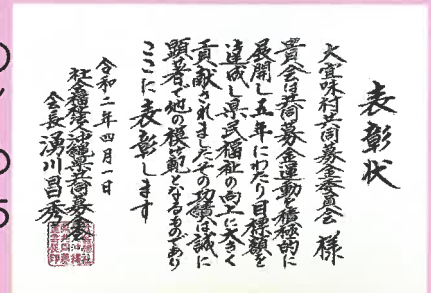 表彰状
大宜味村共同募金委員会 様
貴会は共同募金運動を積極的に
展開し五年にわたり目標額を
達成し県民福祉の向上に大きく
貢献されましたその功績は誠に
顕著で他の模範となるものであり
ここに表彰します
令和二年四月一日
社会福祉法人沖縄県共同募金会
会長 湧川昌秀